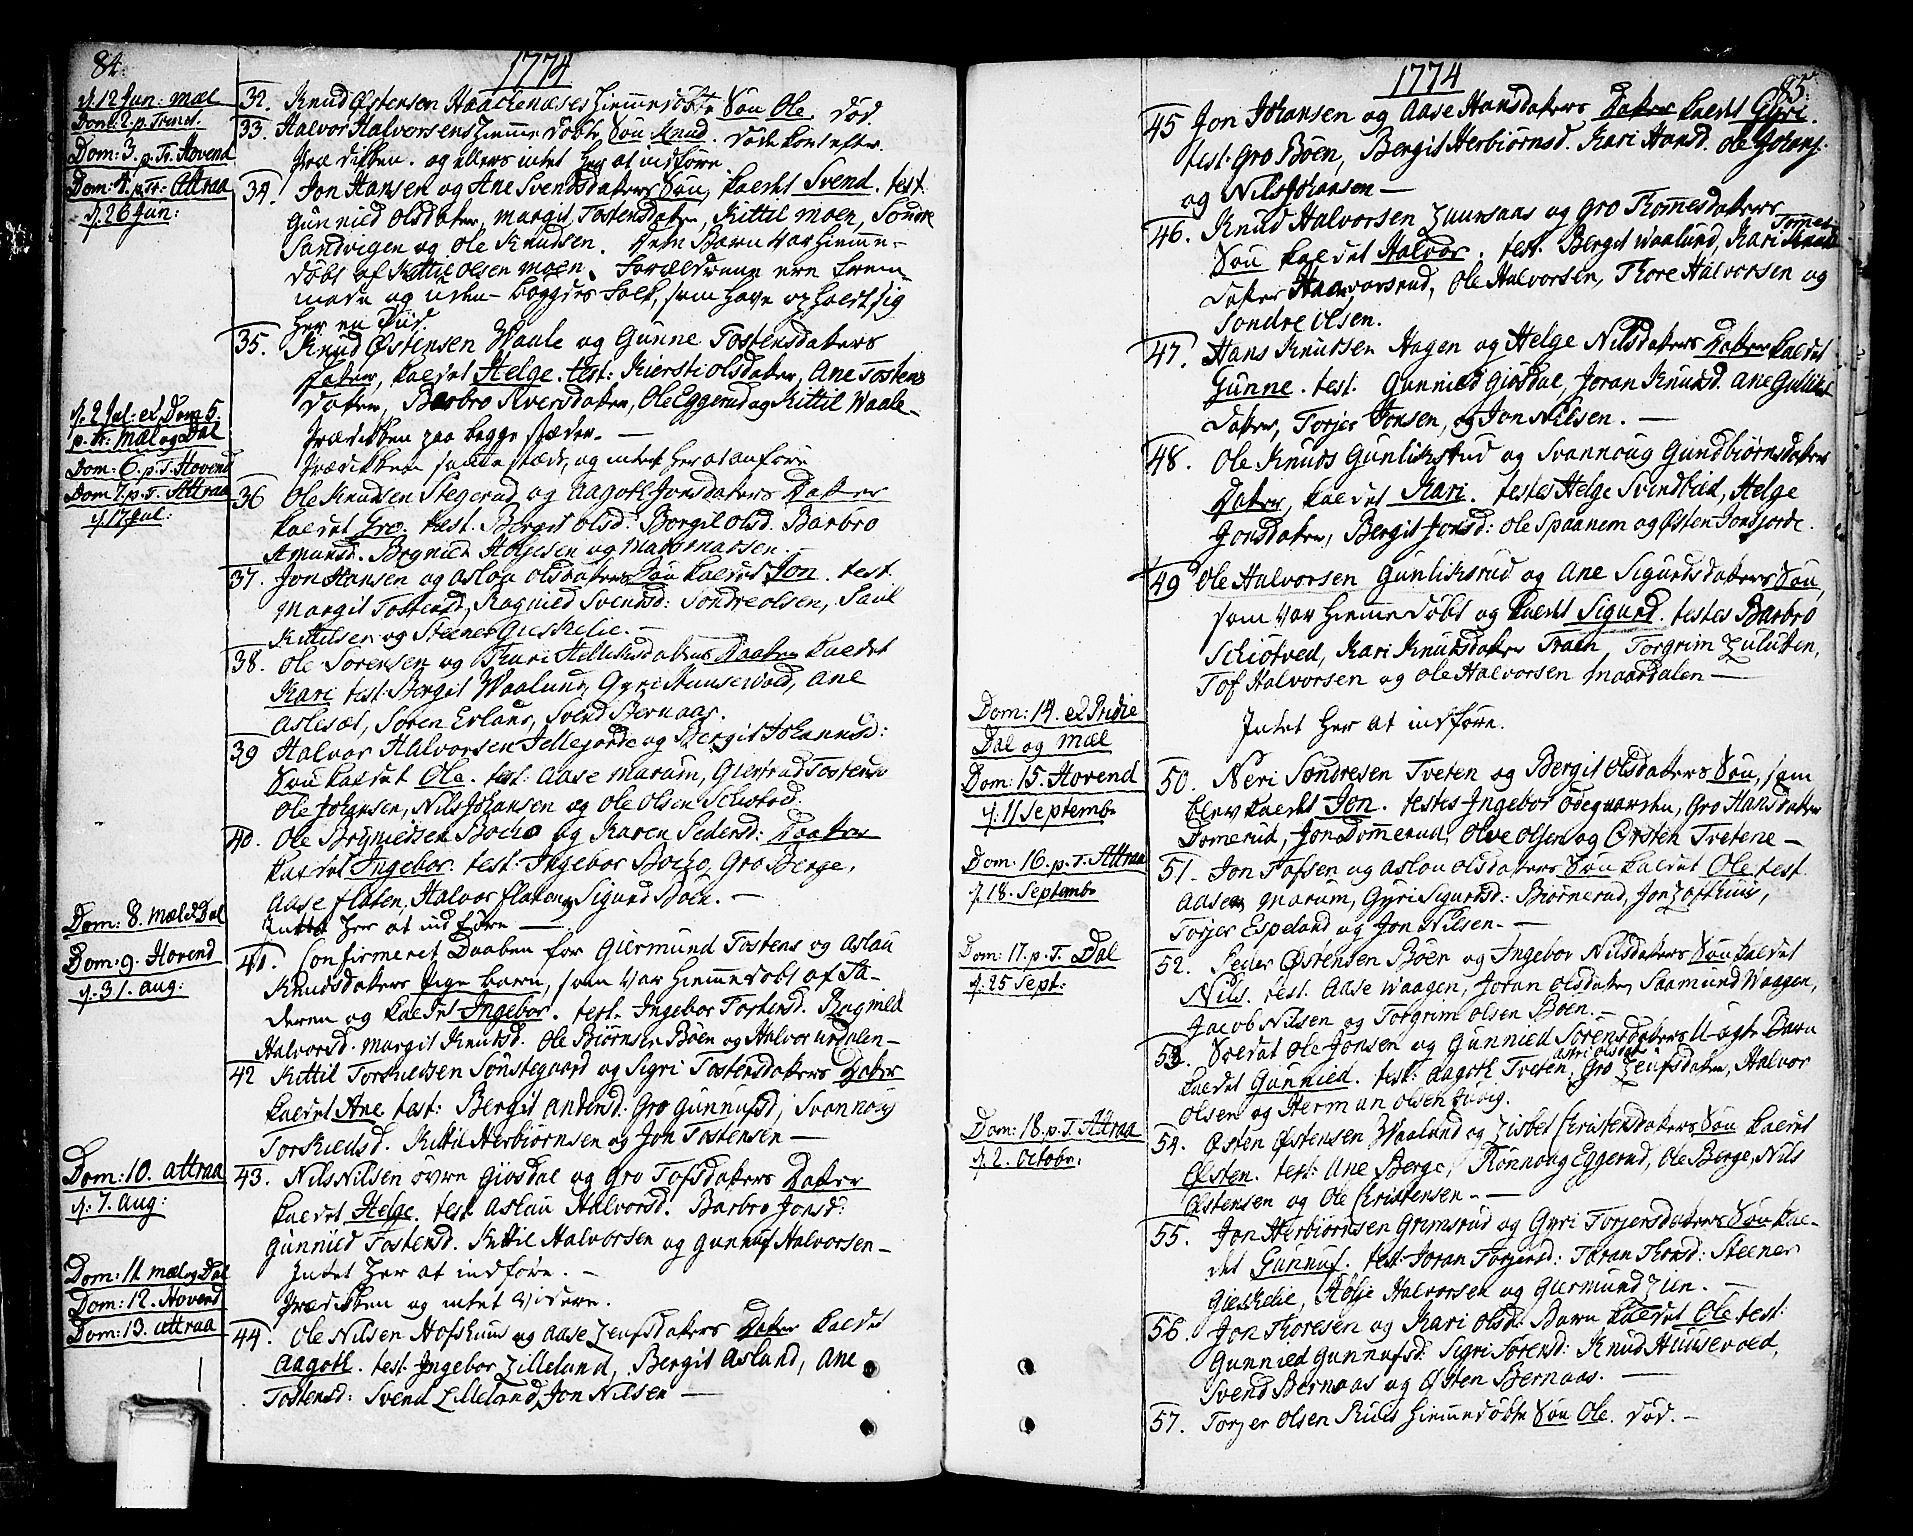 84.
1774
d. 12 Jun: Mæl
Dom: 2. p. Trinit.
Dom: 3. p. Tr. Hovend
Dom: 4. p. Tr: Attraa
d. 26 Jun:
32. Knud Østensen Haackenæses hiemmedøbte Søn Ole. død.
33. Halvor Halvorsens hiemmedøbte Søn Knud. døde kort efter.
Prædikken. og ellers intet her at indføre
34. Jon Hansen og Ane Svendsdaters Søn, kaldt Svend. test.
Gunnild Olsdater, Margit Tostensdater, Kittil Moen, Sondre
Sandvigen og Ole Knudsen. Dette Barn var hiemme-
døbt af Kittil Olsen Moen. Forældrene ere frem
mede og uden-bøygdes Folk, som have opholdt sig
her en Tiid.
35. Knud Østensen Waale og Gunne Tostensdaters
Dater, kaldet Helge. test: Kiersti Olsdater, Ane Tostens
dater, Barbro Iversdater, Ole Eggerud og Kittil Waale-
d. 2 Jul: et Dom 5.
p. Tr: Mæl og Dal
Prædikken paa begge stæder. —
Dom: 6. p. T. Hovend
Prædikken samme stæd, og intet her at anføre
Dom 7. p. T. Attraa
d. 17 Jul:
36 Ole Knudsen Stegerud og Aagoth Jonsdaters Dater
kaldet Gro. test. Bergit Olsd: Borgil Olsd. Barbro
Amunsd. Brynild Holjesen og
37. Jon Hansen og Aslou Olsdaters Søn kaldet Jon. test.
Margit Tostensd, Ragnild Svendsd: Sondre Olsen, Paul
Kittilsen og Steener Gieskelie. —
38. Ole Sorensen og Thuri Hellieksdaters Daater kaldet
Kari test: Bergit Waalund, Gyri Huusewold, Ane
Aslesæt, Soren Erlans, Svend Bernaas.
39 Halvor Halvorsen Jellejorde og Bergit Johannisd:
Søn kaldet Ole. test: Aase Marum, Giertrud Tostensd
Ole Johansen, Nils Johansen og Ole Olsen Schiotved.
40. Ole Brynieldsen Boche og Karen Pedersd: Daater
kaldet Ingebor. test: Ingebor Boche, Gro Berge,
Aase Flaten, Halvor Flaten og Sigurd Boen. —
Dom: 8. Mæl & Dal
Intet her at indføre —
Dom: 9. Hovend
d. 31. Aug:
41. Confirmeret Daaben for Giermund Tostens og Aslau
Knudsdaters Pige barn, som var hiemmedøbt af Fa-
deren og kaldet Ingebor. test. Ingebor Tostensd. Ragnild
Halvorsd. Margit Knutsd. Ole Biørnsen Bøen og Halvor Urdalen-
42 Kittil Torskieldsen Sønstegaard og Sigri Tostensdaters Dater
kaldet Ane test: Bergit Andersd: Gro Gunnufsd, Svannoug
Torskieldsd. Kittil Herbiørnsen og Jon Tostensen —
Dom: 10. Attraa
d. 7. Aug:
43. Nils Nilsen øvre Giøsdal og Gro Tofsdaters Dater
kaldet Helge. test. Aslau Halvorsd. Barbro Jonsd:
Gunnied Tostensd. Kittil Halvorsen og Gunnuf Halvorsen-
Dom: 11 Mæl og Dal
Intet her at indføre. —
Dom: 12. Hovend
Prædikken og intet videre.
Dom: 13. Attraa
44. Ole Nilsen Hofshuus og Aase Zeufsdaters Dater kaldet
Aagoth. test. Ingebor Lilleland, Bergit Asland, Ane
Tostensd: Svend Lilleland, Jon Nilsen —
1774
85.
45 Jon Johansen og Aase Hansdaters Dater kaldt Gyri.
test: Gro Bøen, Bergit Herbiørnsd. Kari Hansd. Ole Johans.
og Nils Johansen —
46. Knud Halvorsen Zuursaas og Gro Tommesdaters
Søn kaldet Halvor. test. Bergit Waalund, Kari Tommes
dater Haavorsrud, Ole Halvorsen, Thore Halvorsen og
Sondre Olsen.
47. Hans Knutsen Hagen og Helge Nilsdaters Dater kaldet
Gunne. test: Gunnied Giøsdal, Joran Knutsd. Ane Gulliks
dater, Torjer Jonsen, og Jon Nilsen. —
48. Ole Knuds Gunlikstud og Svannoug Gundbiørnsdaters
Dater, kaldet Kari. testes Helge Svindbied, Helge
Jonsdater, Bergit Jonsd: Ole Spaanem og Østen Jonsjorde.
49. Ole Halvorsen Gunliksrud og Ane Sigurdsdaters Søn,
som var hiemmedøbt og kaldt Sigurd. testes Barbro
Schiøtved, Kari Knutsdater Traen, Torgrim Zulutten,
Tof Halvorsen og Ole Halvorsen Maardalen —
Dom: 14. et Pridie
Dal og Mæl
Intet her at indføre.
Dom: 15. Hovend
d. 11 Septembr
50. Neri Sondresen Tveten og Bergit Olsdaters Søn, som
blev kaldt Jon. testes Ingebor Ødegaarden, Gro Hansdater
Domerud, Jon Dommerud, Olve Olsen og Ørsten Tvetene —
Dom: 16. p. T. Attraa
d. 18. Septembr
51. Jon Tofsen og Aslou Olsdaters Søn kaldet Ole test.
Aase Marum, Gyri Sigurdsd: Biørnerud, Jon Lofthuus,
Torjer Espeland og Jon Nilsen. —
Dom: 17. p. T. Dal
d. 25 Sept:
52. Peder Østensen Bøen og Ingebor Nilsdaters Søn kaldet
Nils. test: Aase Waagen, Joran Olsdater, Saamund Waagen,
Jacob Nilsen og Torgrim Olsen Bøen. —
53. Soldat Ole Jonsen og Gunnied Sörensdaters Uægte Barn
Astri Olsdat.
kaldet Gunnied. test: Aagoth Tveten, Gro Zeufsdater, Halvor
Olsen og Herman Olsen
Dom: 18. p. T. Attraa
d. 2. Octobr.
54. Østen Østensen Waalund og Lisbet Christensdaters Søn kaldet
Østen. test: Ane Berge, Rønnoug Eggerud, Ole Berge, Nils
Østensen og Ole Christensen. —
55. Jon Herbiørnsen Grimsrud og Gyri Torjersdaters Søn kal-
det Gunnuf. test: Joran Torjersd: Taran Thorsd: Steener
Gieskelie, Holje Halvorsen og Gurmund Lien. —
56. Jon Thoresen og Kari Olsd: Barn kaldet Ole test:
Gunnied Gunnufsd: Sigri Sørensd: Knud Huusevoed,
Svend Bernaas og Østen Bernaas. —
57. Torjer Olsen Ruus hiemmedøbte Søn Ole. død. —